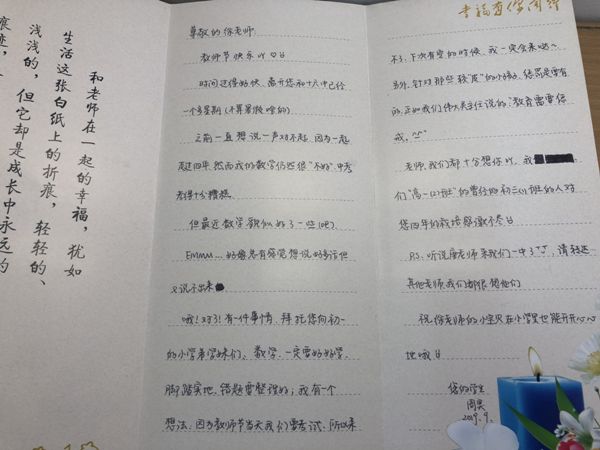 和老师在一起的幸福，犹如
生活这张白纸上的折痕，轻轻的、
浅浅的，但它却是成长中永远的
痕迹，
尊敬的徐老师：
教师节快乐吖♡
时间过得好快，离开您和十八中已经
一个多星期（不算暑假啥的）
之前一直想说一声对不起，因为一起
走过四年，然而我的数学仍然很“不好”，中考
考得十分糟糕。
但最近数学貌似好了一些（吧）
EMMM...好像总有领觉想说好多话但
又说不出来
哦！对了！有一件事情，拜托您向初一
的小学弟学妹们，数学，一定要好好学，
脚踏实地，错题要整理好；我有一个
想法，因为教师节当天我们要考试，所以来
幸福有你阅读
不了，下次有空的时候，我一定会来哒~
另外，针对那些较“皮”的小朋友，惩罚是要有
的，正如我们伟大吴主任说的：“教育需要惩
戒。”
老师，我们都十分想你吖，我
们“高一(12)班”的曾经的初三(1)班的人对
您四年的栽培感激不尽
P.S. 听说唐老师来我们一中了，请转达
其他老师，我们都很想他们
祝徐老师的小宝贝在小学里也能开开心心
地哦
您的学生
周昊
2019.9.